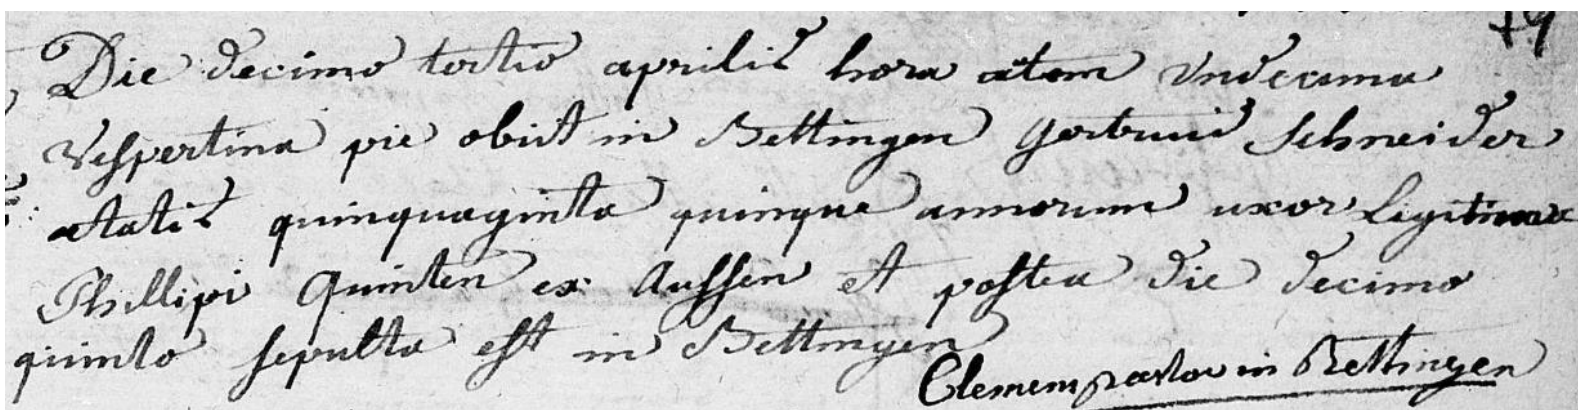 79
Die decimo tertio aprilis hora undecima
Vespertina pie obiit in Bettingen Gertrud Schneider
ætatis quinquaginta quinque annorum uxor Legitima
Phillipi Quinten ex Aussen et postea die decimo
quinto sepulta est in Bettingen
Clemens pastor in Bettingen